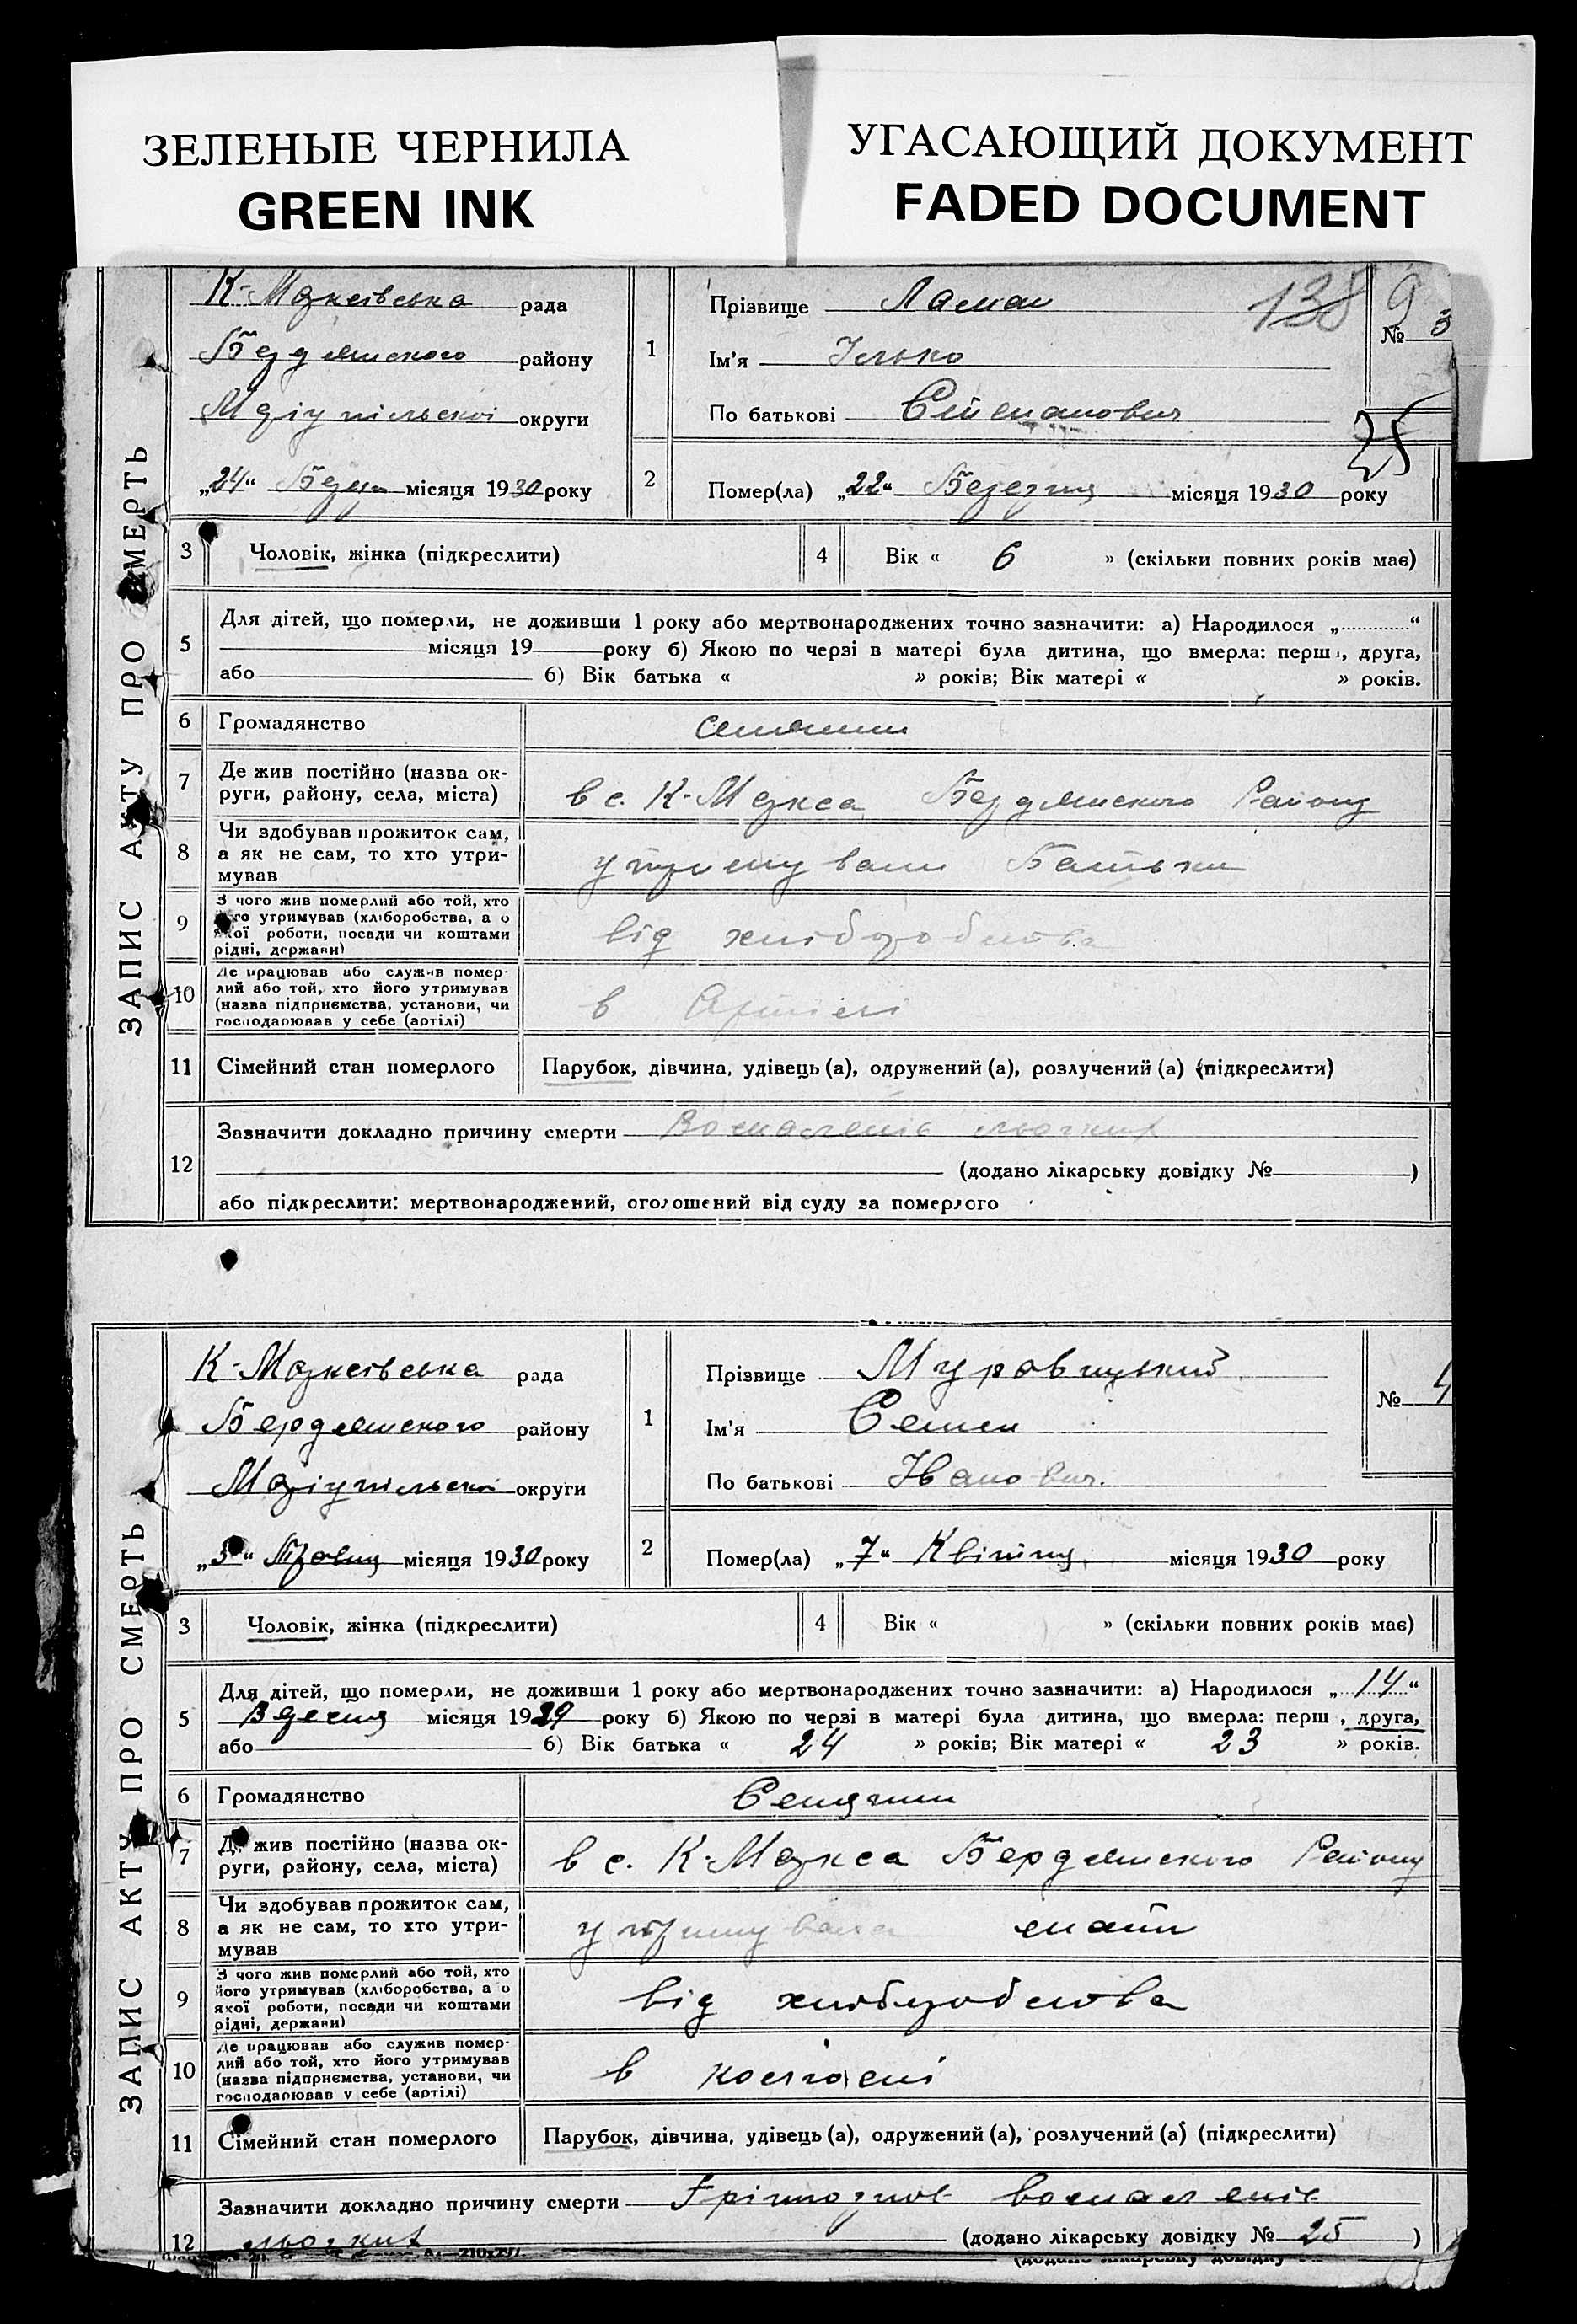 ЗЕЛЕНЫЕ ЧЕРНИЛА
GREEN INK
УГАСАЮЩИЙ ДОКУМЕНТ
FADED DOCUMENT
ЗАПИС АКТУ ПРО СМЕРТЬ
К-Марксівська рада
Бердянського району
Маріупільскої округи
„24“ місяця 1930 року
1
Прізвище Ламан
Ім'я Ілько
По батькові Степанович
138
9
№ 3
25
2
Помер(ла) „22“ Березня місяця 1930 року
3 Чоловік, жінка (підкреслити)
4 Вік « 6 » (скільки повних років має)
5 Для дітей, що померли, не доживши 1 року або мертвонароджених точно зазначити: а) Народилося „ “
місяця 19 року б) Якою по черзі в матері була дитина, що вмерла: перш, друга,
або б) Вік батька « » років; Вік матері « » років.
6 Громадянство селянин
7 Де жив постійно (назва ок-
руги, району, села, міста) в с. К-Маркса Бердянского Району
8 Чи здобував прожиток сам,
а як не сам, то хто утри-
мував утримували Батьки
9 З чого жив померлий або той, хто
його утримував (хліборобства, а о
якої роботи, посади чи коштами
рідні, держави) від хліборобства
10 Де працював або служив помер-
лий або той, хто його утримував
(назва підприємства, установи, чи
господарював у себе (артілі) в Артілі
11 Сімейний стан померлого Парубок, дівчина, удівець (а), одружений (а), розлучений (а) (підкреслити)
12 Зазначити докладно причину смерти Воспаленіє льогких
(додано лікарську довідку № )
або підкреслити: мертвонароджений, оголошений від суду за померлого
ЗАПИС АКТУ ПРО СМЕРТЬ
К-Марксівська рада
Бердянского району
Маріупільскої округи
„3“ Травня місяця 1930 року
1
Прізвище Муровицький
Ім'я Семен
По батькові Іванович.
№ 4
2
Помер(ла) „7“ Квітня місяця 1930 року
3 Чоловік, жінка (підкреслити)
4 Вік « » (скільки повних років має)
5 Для дітей, що померли, не доживши 1 року або мертвонароджених точно зазначити: а) Народилося „14“
Вересня місяця 1929 року б) Якою по черзі в матері була дитина, що вмерла: перш, друга,
або б) Вік батька « 24 » років; Вік матері « 23 » років.
6 Громадянство Селянин
7 Де жив постійно (назва ок-
руги, району, села, міста) в с. К-Маркса Бердянского Району
8 Чи здобував прожиток сам,
а як не сам, то хто утри-
мував утримувала мати
9 З чого жив померлий або той, хто
його утримував (хліборобства, а о
якої роботи, посади чи коштами
рідні, держави) від хліборобства
10 Де працював або служив помер-
лий або той, хто його утримував
(назва підприємства, установи, чи
господарював у себе (артілі) в
11 Сімейний стан померлого Парубок, дівчина, удівець (а), одружений (а), розлучений (а) (підкреслити)
12 Зазначити докладно причину смерти воспаленіє
льогких (додано лікарську довідку № 25 )